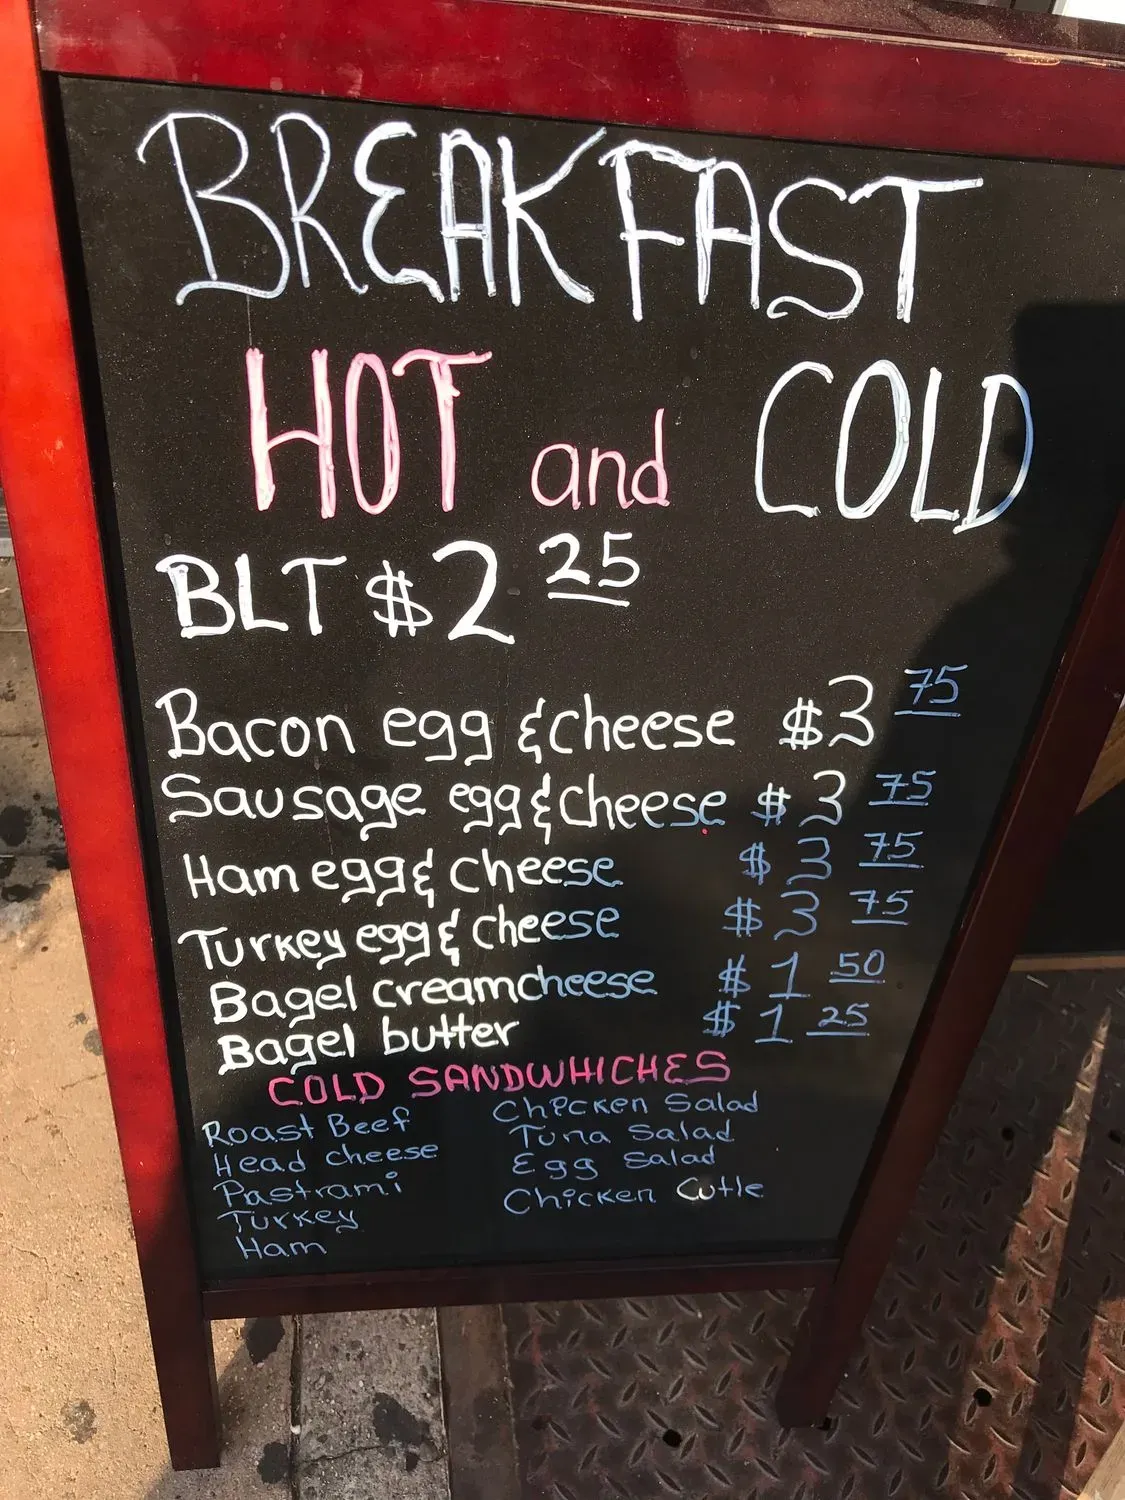 BREAKFAST
HOT and COLD
BLT $2 25
Bacon egg & cheese $3 75
Sausage egg & cheese $3 75
Ham egg & cheese $3 75
Turkey egg & cheese $3 75
Bagel creamcheese $1 50
Bagel butter $1 25
COLD SANDWHICHES
Roast Beef
Head cheese
Pastrami
Turkey
Ham
Chicken Salad
Tuna Salad
Egg Salad
Chicken Cutle